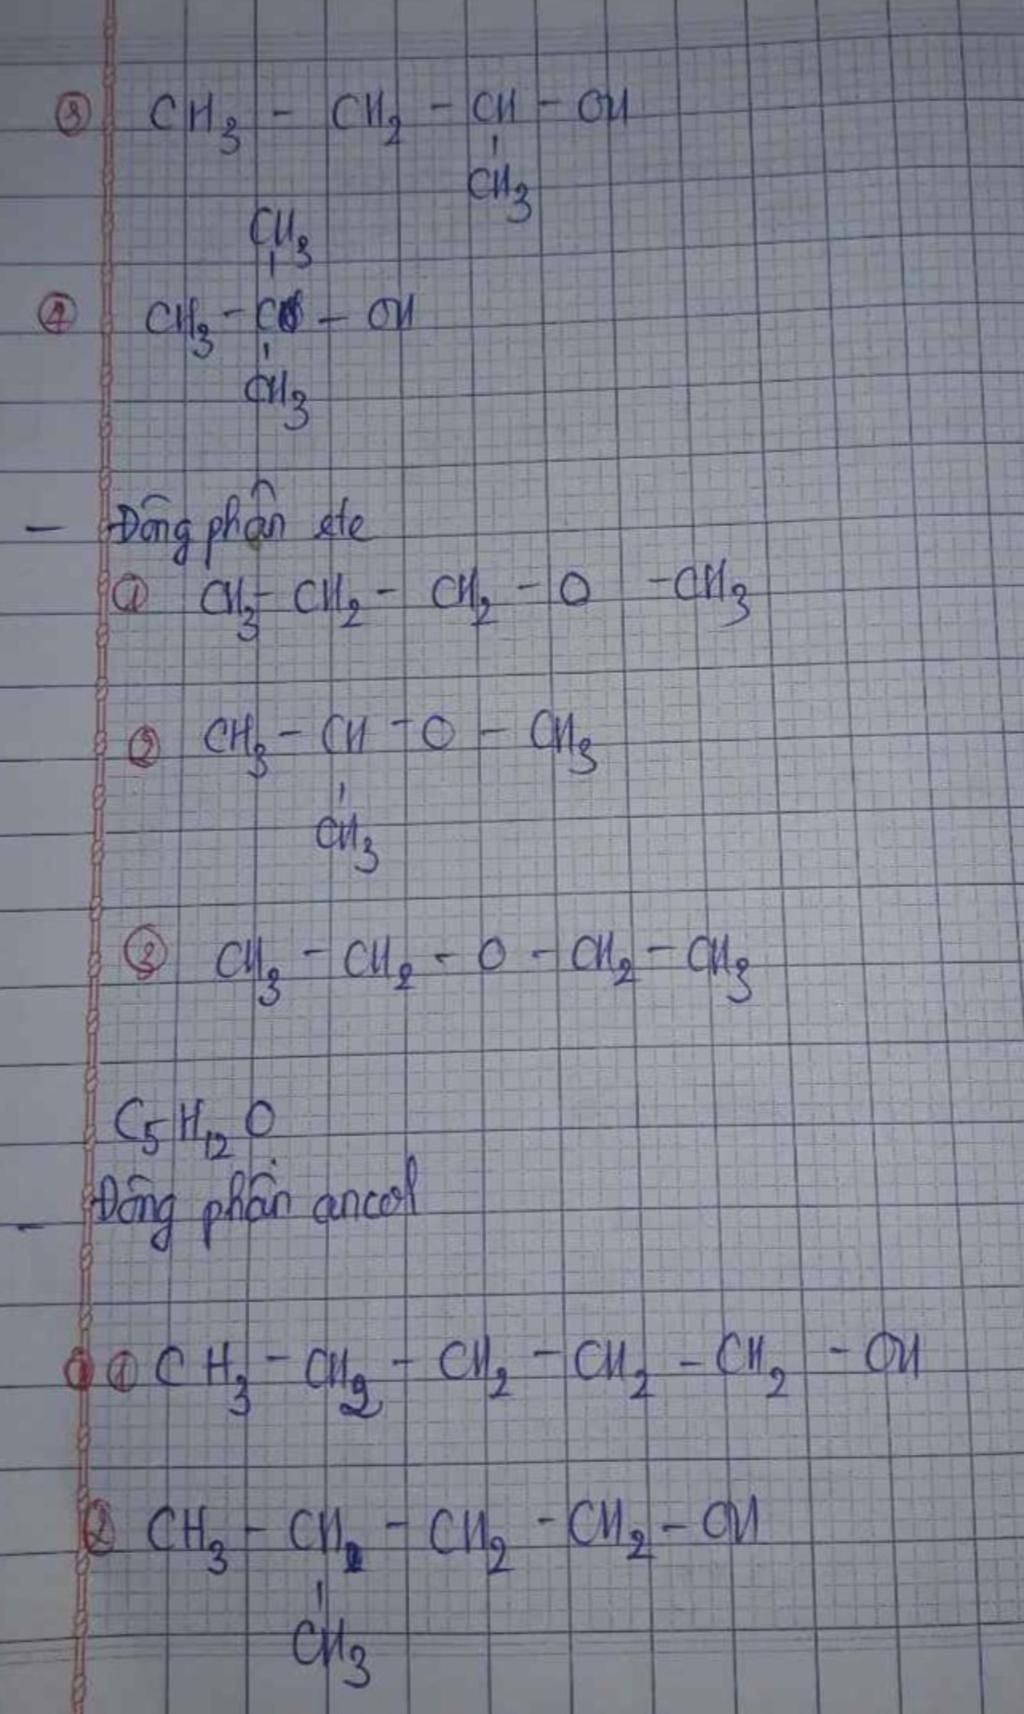 ③ CH₃ - CH₂ - CH - OH
CH₃
CH₃
④ CH₃ - C - OH
CH₃
- Đồng phân ete
① CH₃ - CH₂ - CH₂ - O - CH₃
② CH₃ - CH - O - CH₃
CH₃
③ CH₃ - CH₂ - O - CH₂ - CH₃
C₅H₁₂O
- Đồng phân ancol
① CH₃ - CH₂ - CH₂ - CH₂ - CH₂ - OH
② CH₃ - CH - CH₂ - CH₂ - OH
CH₃